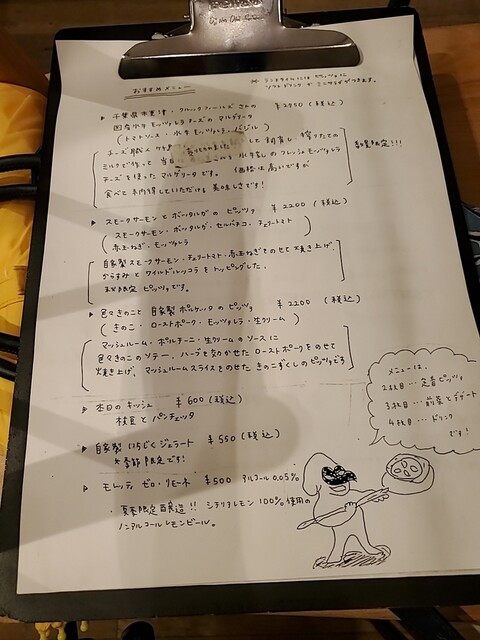 おすすめメニュー
※ ランチタイムには ピッツァに
ソフトドリンク が つきます。
▶ 千葉県木更津・クルックフィールズ さんの ¥2950 (税込)
国産水牛モッツァレラチーズの マルゲリータ
(トマトソース・水牛モッツァレラ・バジル)
チーズ職人 して 飼育し、搾りたての
ミルクで作って 水牛製の フレッシュモッツァレラ
チーズを使ったマルゲリータです。 価格は高いですが
食べて納得していただける 美味しさです!
数量限定!!!
▶ スモークサーモンとボッタルガの ピッツァ ¥2200 (税込)
(スモークサーモン・ボッタルガ・セルバチコ・チェリートマト
赤玉ねぎ・モッツァレラ)
自家製スモークサーモン・チェリートマト・赤玉ねぎをのせて 焼き上げ
からすみと ワイルドルッコラを トッピングした、
限定 ピッツァです。
▶ 色々きのこと 自家製 ポルケッタの ピッツァ ¥2200 (税込)
(きのこ・ローストポーク・モッツァレラ・生クリーム)
マッシュルーム・ポルチーニ・生クリームの ソースに
色々きのこのソテー、ハーブを効かせた ローストポークをのせて
焼き上げ、マッシュルームスライスをのせた きのこづくしのピッツァです
▶ 本日のキッシュ ¥600 (税込)
枝豆と パンチェッタ
▶ 自家製 いちじくジェラート ¥550 (税込)
※季節限定です!
▶ モレッティ ゼロ・リモーネ ¥500 アルコール 0.05%
・夏季限定醸造!! シチリアレモン 100%使用の
ノンアルコールレモンビール。
メニューは、
2枚目 … 定番ピッツァ
3枚目 … 前菜とデザート
4枚目 … ドリンク
です!